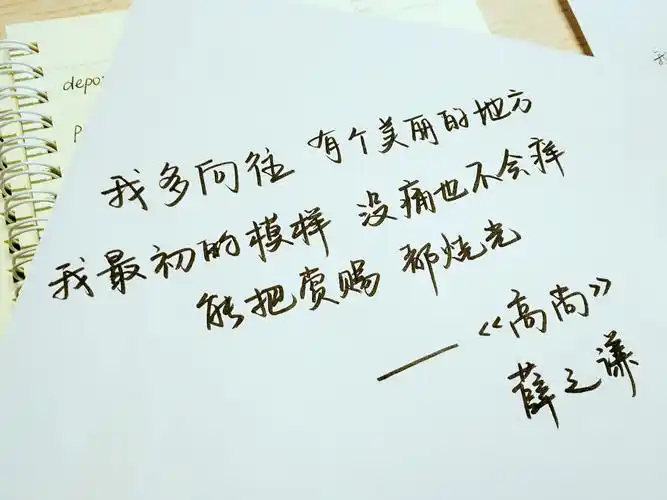 depo
P
我多向往 有个美丽的地方
我最初的模样 没痛也不会痒
能把赏赐 都烧光
——《高尚》
薛之谦